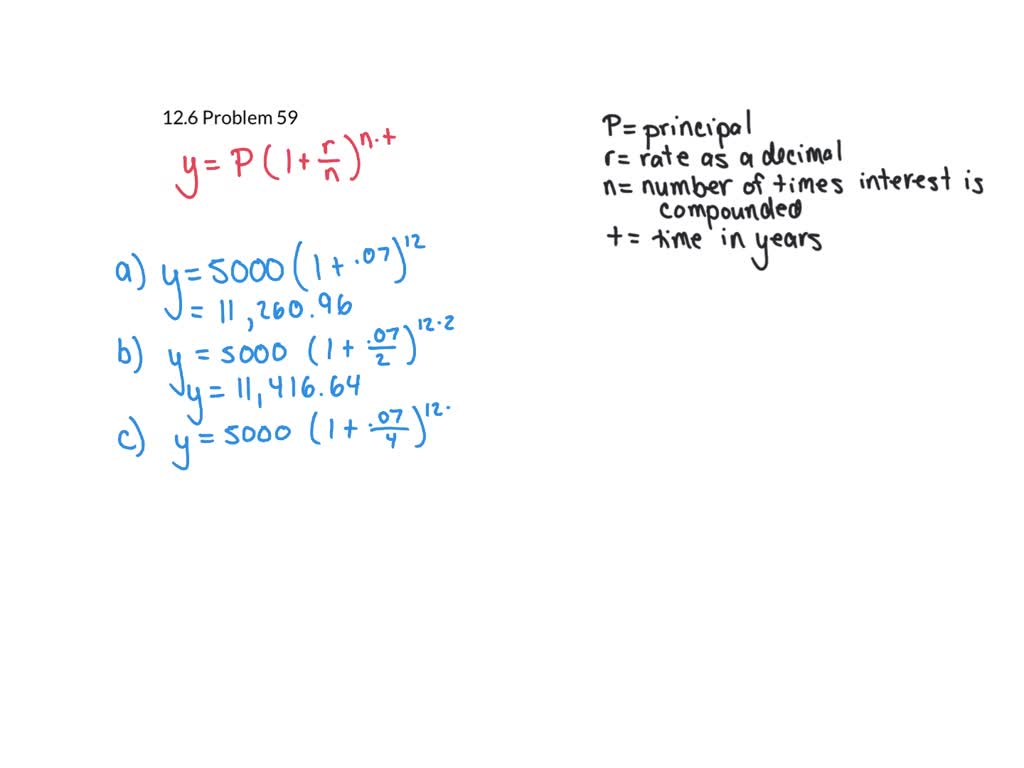 12.6 Problem 59
y = P (1 + r/n)^n·t
P = principal
r = rate as a decimal
n = number of times interest is
compounded
t = time in years
a) y = 5000 (1 + .07)^12
= 11,260.96
b) y = 5000 (1 + .07/2)^12·2
y = 11,416.64
c) y = 5000 (1 + .07/4)^12·